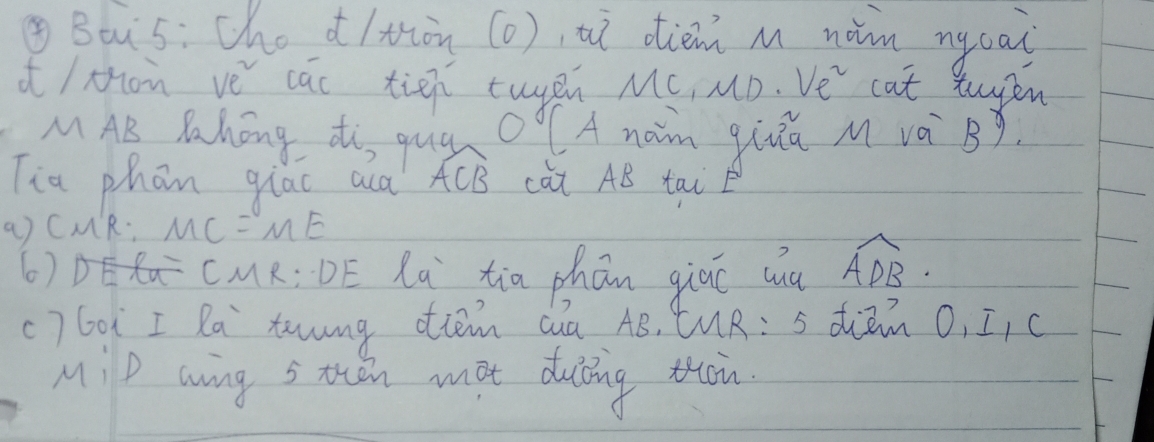 * Bài 5: Cho đ/tròn (O), từ điểm M nằm ngoài
đ/tròn vẽ các tiếp tuyến MC, MD. Vẽ cát tuyến
MAB không đi qua O (A nằm giữa M và B).
Tia phân giác của ACB cắt AB tại E
a) CMR: MC = ME
b) DE là CMR: DE là tia phân giác của ADB.
c) Gọi I là trung điểm của AB. CMR: 5 điểm O, I, C
M; D cùng 5 trên một đường tròn.